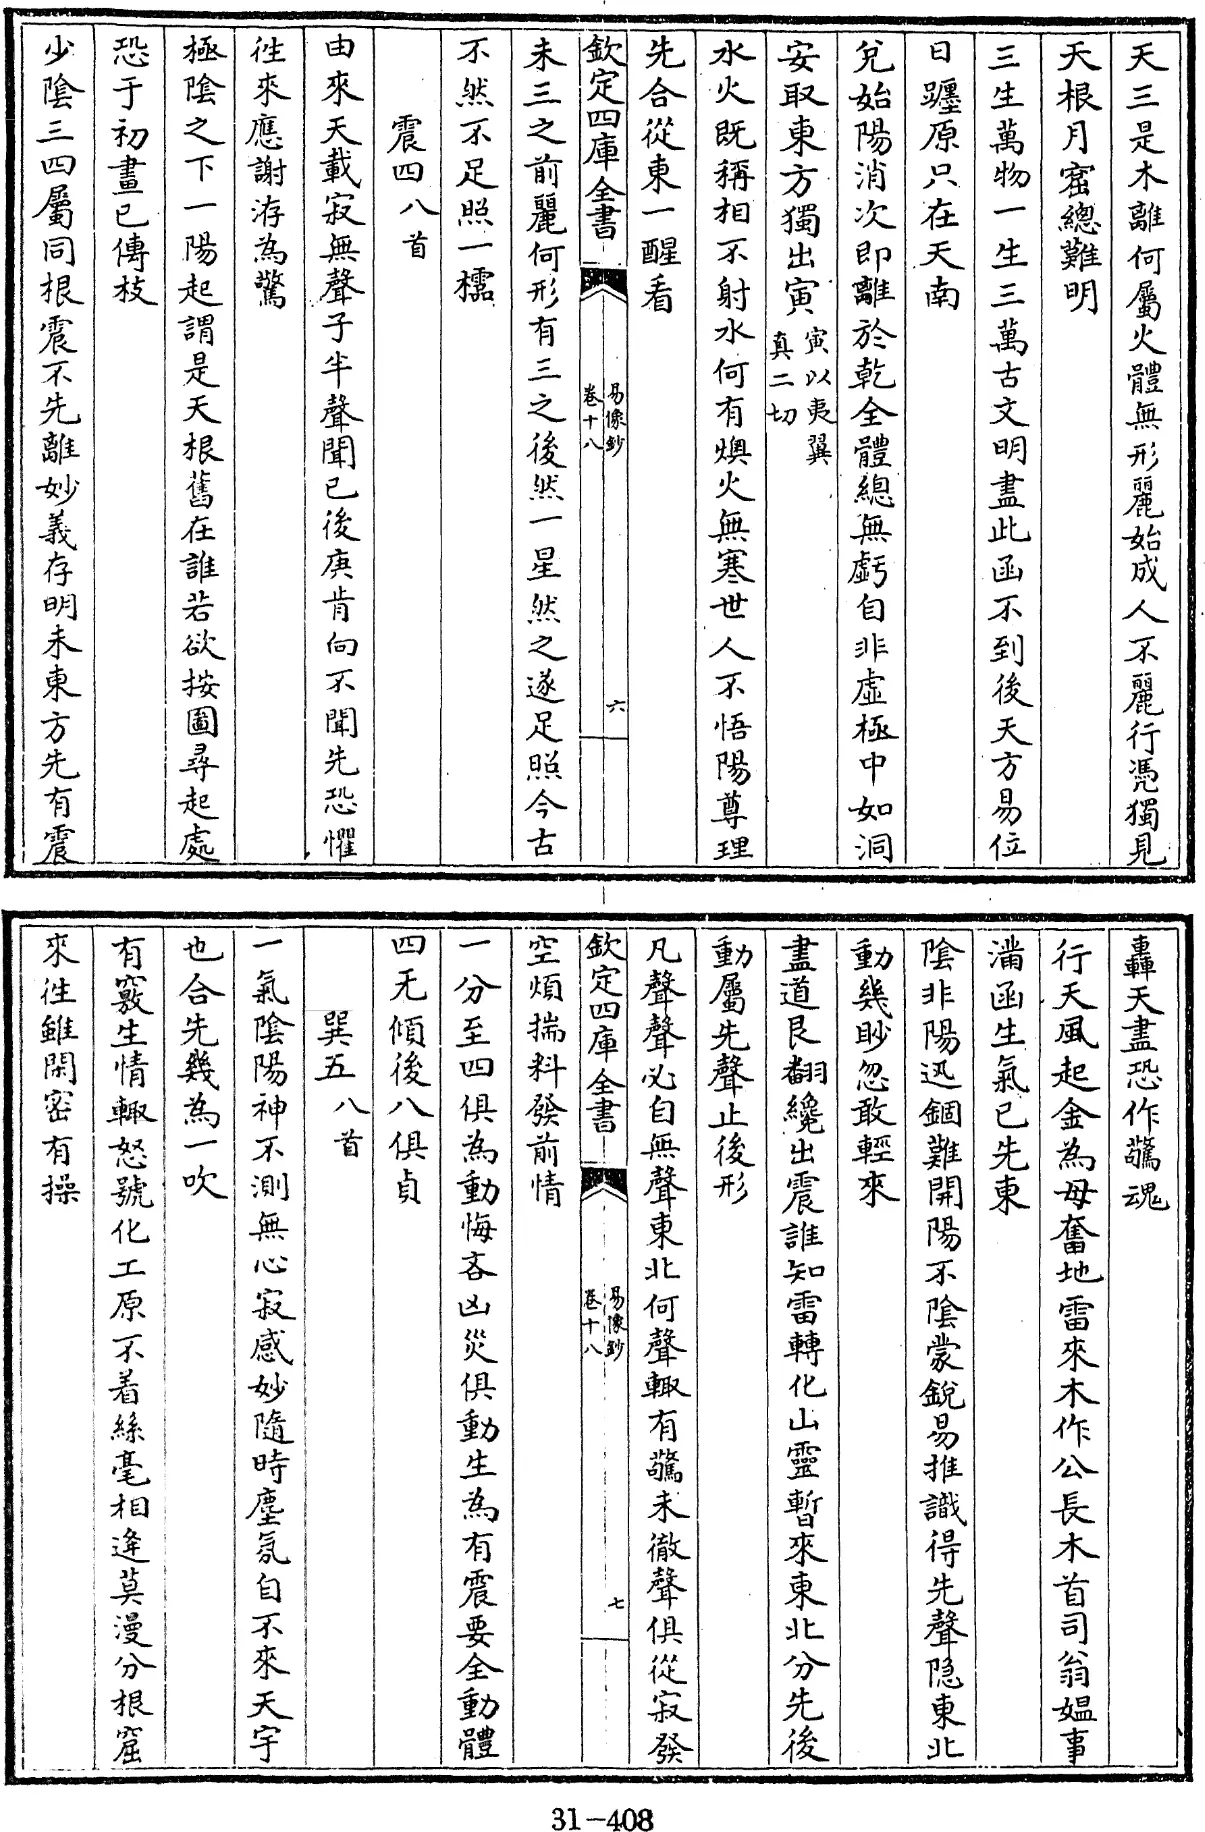 天三是木離何屬火體無形麗始成人不麗行憑獨見
天根月窟總難明
三生萬物一生三萬古文明盡此函不到後天方易位
日躔原只在天南
兌始陽消次即離於乾全體總無虧自非虛極中如洞
安取東方獨出寅寅以夷翼真二切
水火既稱相不射水何有燠火無寒世人不悟陽尊理
先合從東一醒看
欽定四庫全書
易像鈔
卷十八
六
未三之前麗何形有三之後然一星然之遂足照今古
不然不足照一檽
震四八首
由來天載寂無聲子半聲聞已後庚肯向不聞先恐懼
徃來應謝洊為驚
極陰之下一陽起謂是天根舊在誰若欲按圖尋起處
恐于初畫已傳枝
少陰三四屬同根震不先離妙義存明未東方先有震
轟天盡恐作驚魂
行天風起金為母奮地雷來木作公長木首司翁媼事
滿函生氣已先東
陰非陽迅錮難開陽不陰蒙銳易推識得先聲隠東北
動幾眇忽敢輕來
盡道艮翻纔出震誰知雷轉化山靈暫來東北分先後
動屬先聲止後形
凡聲聲必自無聲東北何聲輙有驚未徹聲俱從寂發
欽定四庫全書
易像鈔
卷十八
七
空煩揣料發前情
一分至四俱為動悔吝凶災俱動生為有震要全動體
四无傾後八俱貞
巽五八首
一氣陰陽神不測無心寂感妙隨時塵氛自不來天宇
也合先幾為一吹
有竅生情輙怒號化工原不着絲毫相逢莫漫分根窟
來徃雖閑密有操
31-408